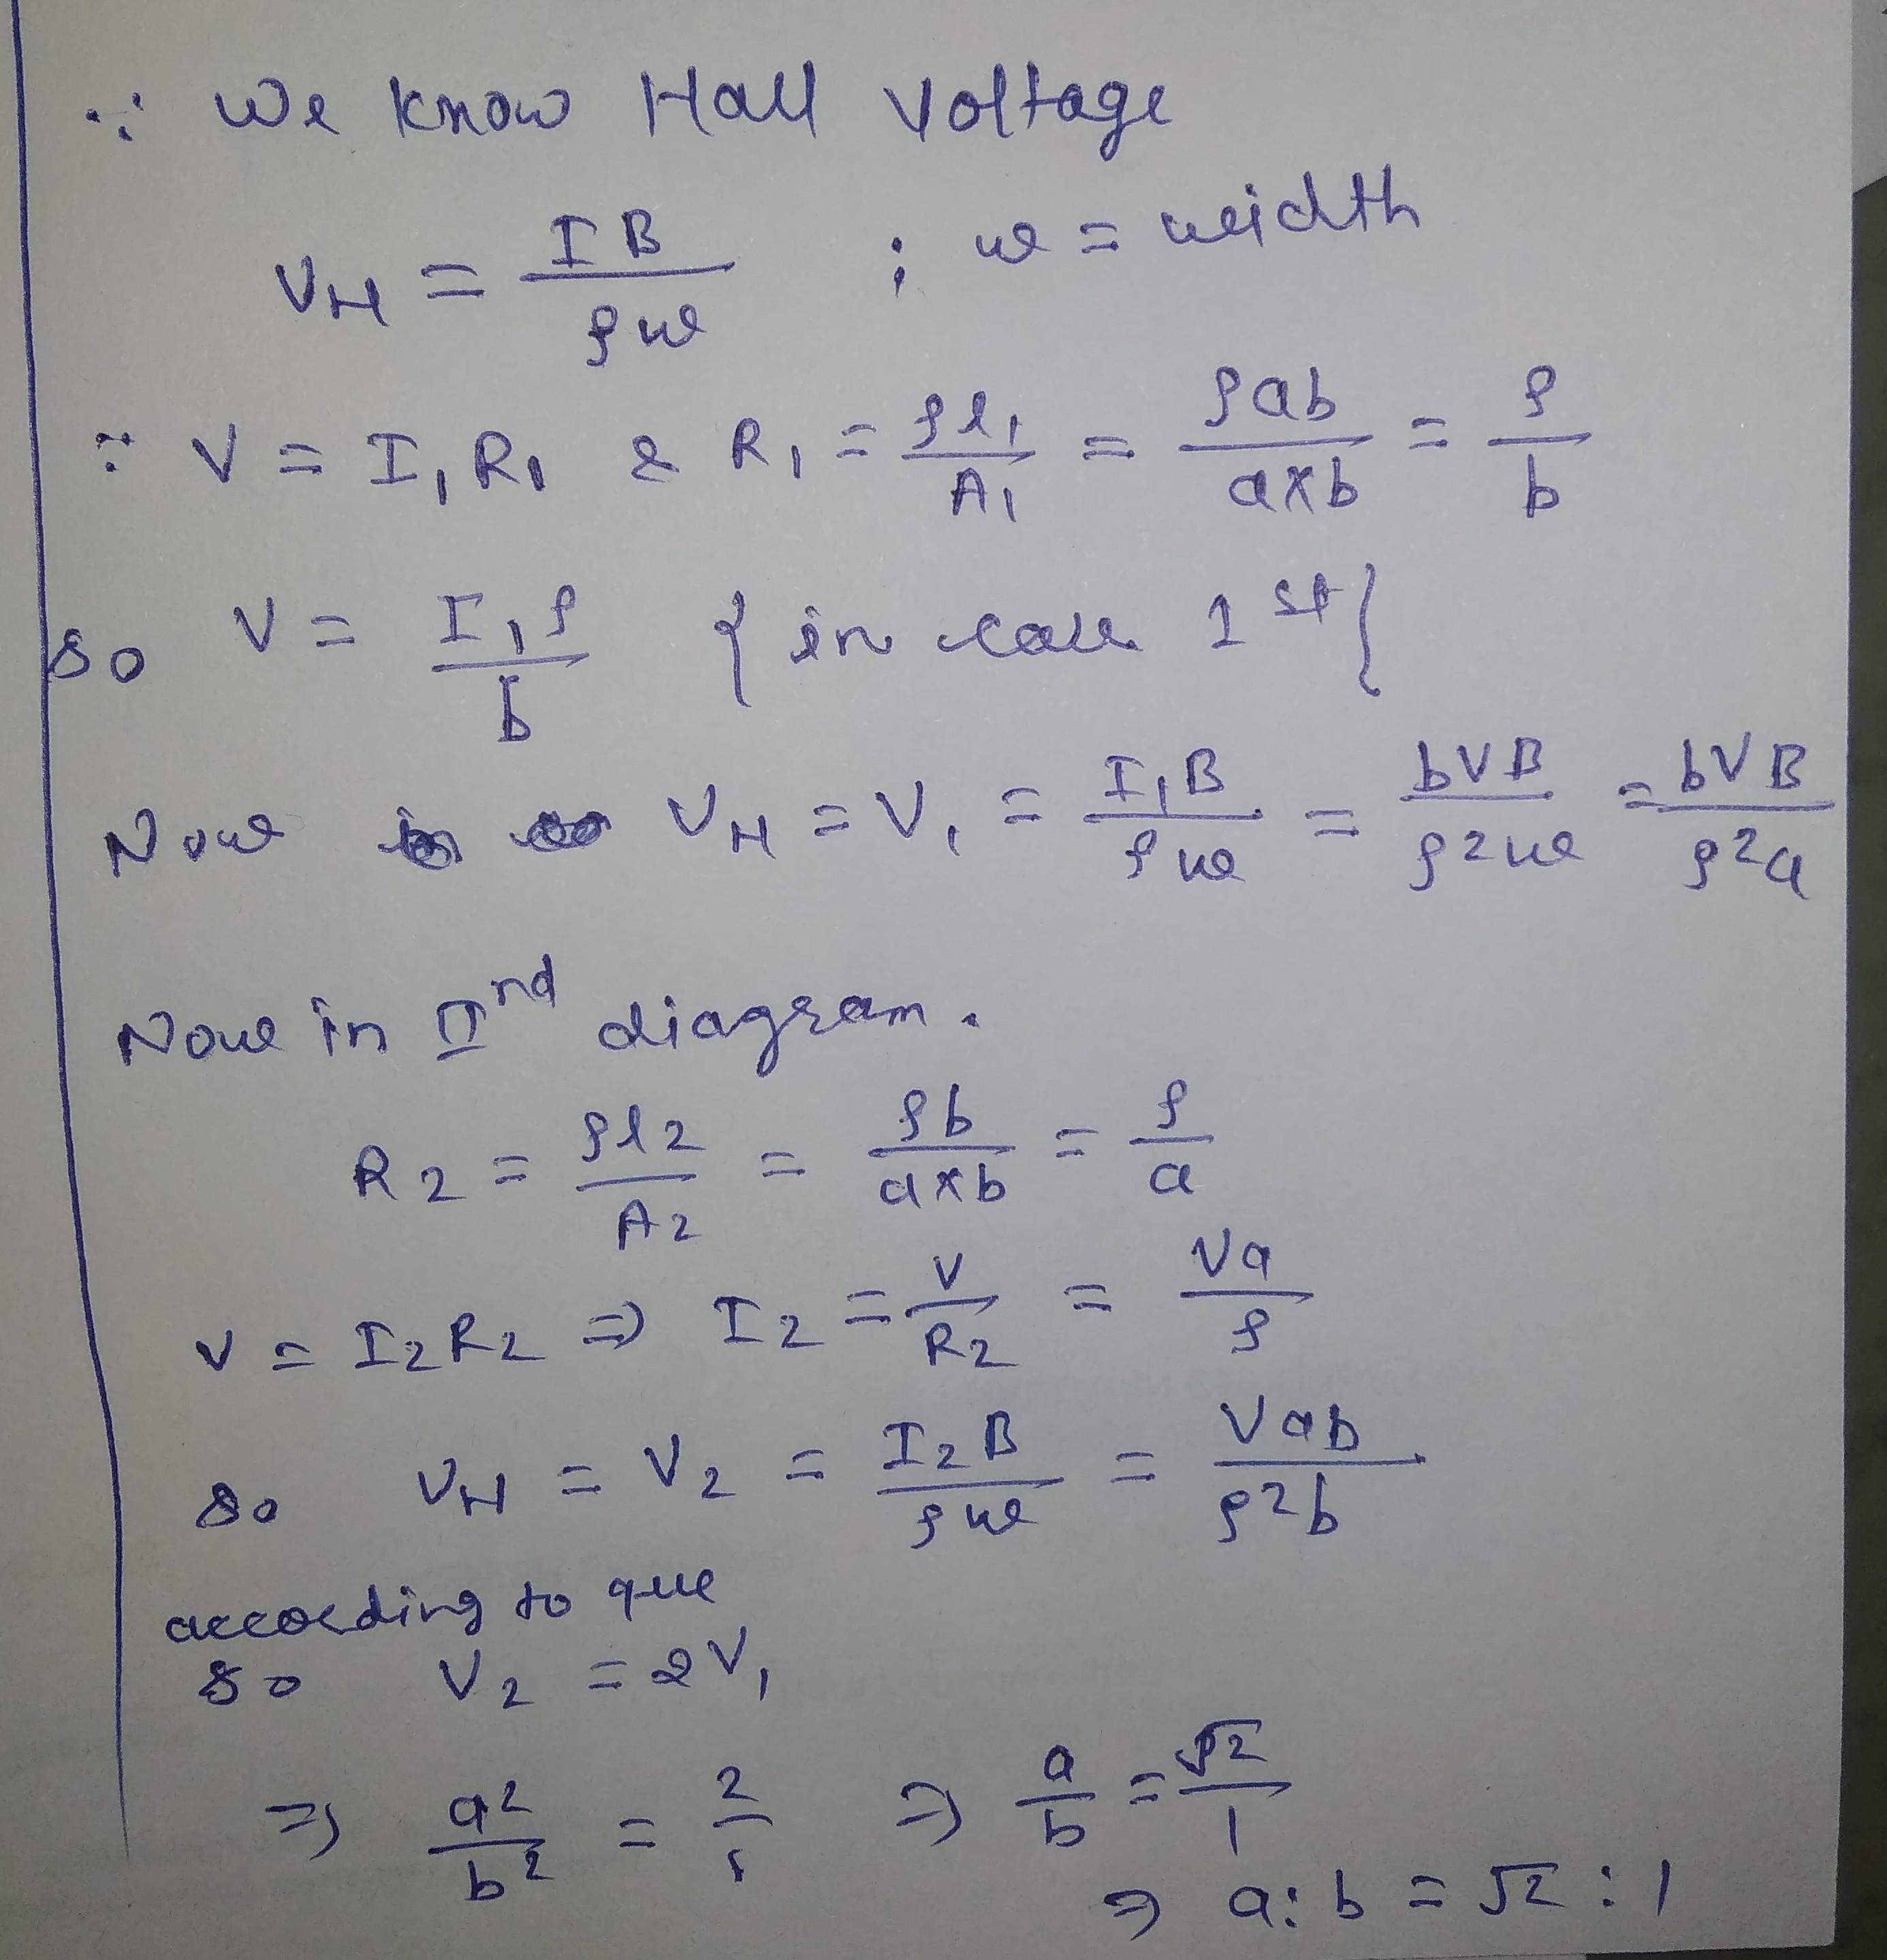 ∵ We know Hall voltage
V_H = IB / ρw ; w = width
∵ V = I₁R₁ & R₁ = ρl₁ / A₁ = ρab / a×b = ρ / b
so V = I₁ρ / b { in case 1st }
Now V_H = V₁ = I₁B / ρw = bVB / ρ²w = bVB / ρ²a
Now in IInd diagram.
R₂ = ρl₂ / A₂ = ρb / a×b = ρ / a
V = I₂R₂ ⇒ I₂ = V / R₂ = Va / ρ
so V_H = V₂ = I₂B / ρw = VaB / ρ²b
according to que
so V₂ = 2V₁
⇒ a² / b² = 2 / 1 ⇒ a / b = √2 / 1
⇒ a : b = √2 : 1